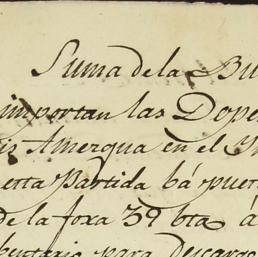 Suma de la Bu
importan las Dope
Amerqua en el
esta Partida bá puer
de la foxa 39 bta á
bentario para Descargo